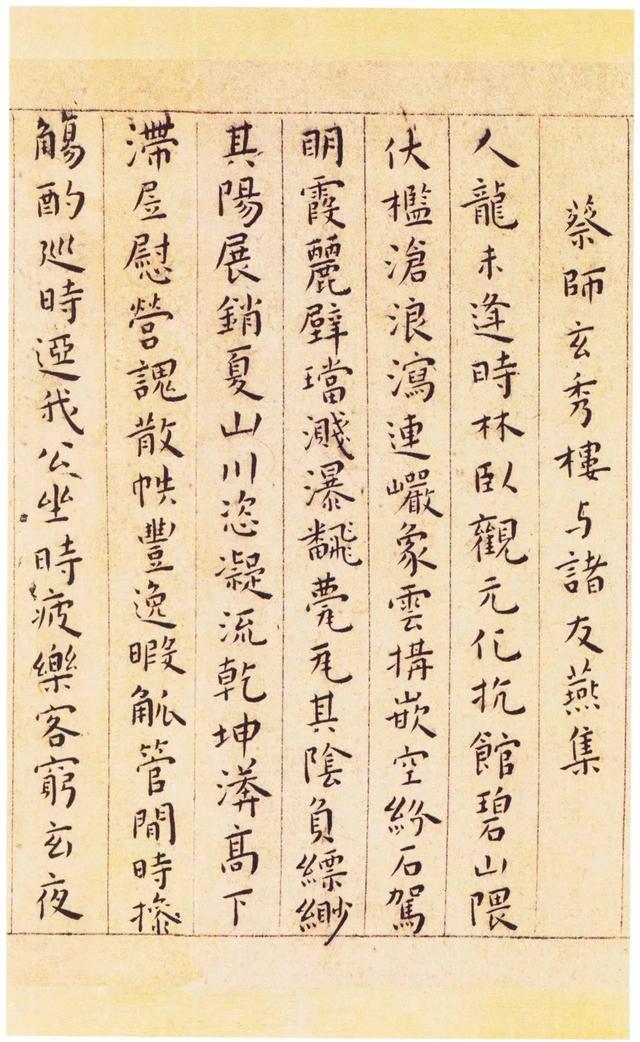 蔡師玄秀樓与諸友燕集
人龍未逢時林臥觀元化抗館碧山隈
伏檻滄浪瀉連巘象雲構嵌空紛石駕
明霞麗璧璫濺瀑飜甍瓦其陰負縹緲
其陽展銷夏山川恣凝流乾坤漭高下
滯居慰營散帙豐逸暇觚管間時操
觴酌巡時我公坐時疲樂客窮玄夜